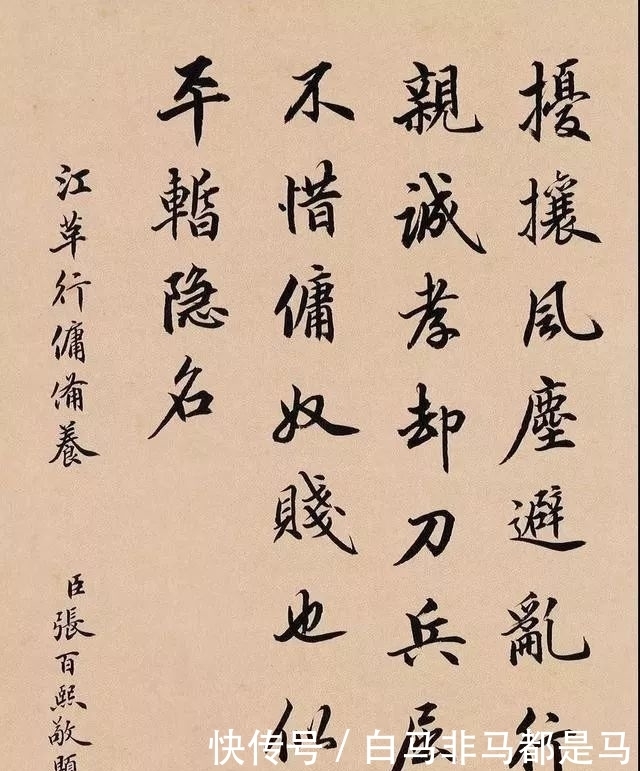 擾攘風塵避亂行
親誠孝却刀兵居
不惜傭奴賤也似
平暫隐名
江革行傭備養
臣張百熙敬題
快传号 / 白马非马都是马